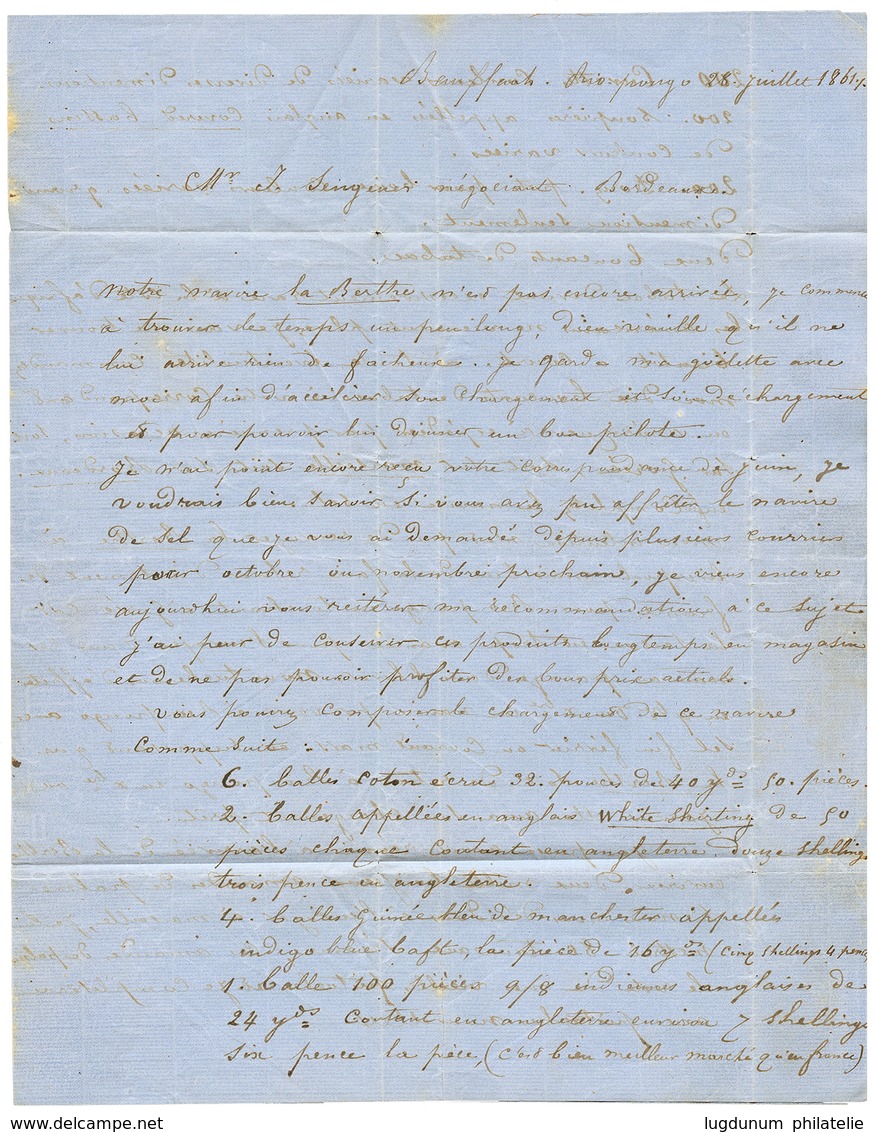 Beuffach. Rio=pongo 28 Juillet 1861.
Mr J. Sengenes négociant. Bordeaux.
Notre navire la Berthe n'est pas encore arrivée, je commence
à trouver le temps un peu long, Dieu veuille qu'il ne
lui arrive rien de facheux. Je garde ma goëlette avec
moi afin d'accélérer son chargement et son déchargement
et pour pouvoir lui donner un bon pilote.
Je n'ai point encore reçu votre correspondance de Juin, je
voudrais bien savoir si vous avez pu affréter le navire
de sel que je vous ai demandée depuis plusieurs courriers
pour octobre ou novembre prochain, je viens encore
aujourdhui vous réitérer ma recommandation à ce sujet
j'ai peur de conserver ces produits longtemps en magasin
et de ne pas pouvoir profiter des bons prix actuels.
Vous pourrez composer le chargement de ce navire
comme suit :
6. balles coton écru 32. pouces de 40 yds 50. pièces.
2. balles appellées en anglais White Shirting de 50
pièces chaque coutant en angleterre. douze shellings
trois pence en angleterre.
4. balles Guinée bleu de manchester appellés
indigo blue baft, la pièce de 16 yds (cinq shellings 4 pence)
1. balle 100 pièces 9/8 indiennes anglaises de
24 yds coutant en angleterre environ 7 shellings
six pence la pièce, (c'est bien meilleur marché qu'en france)
www.delcampe.net
lugdunum philatelie